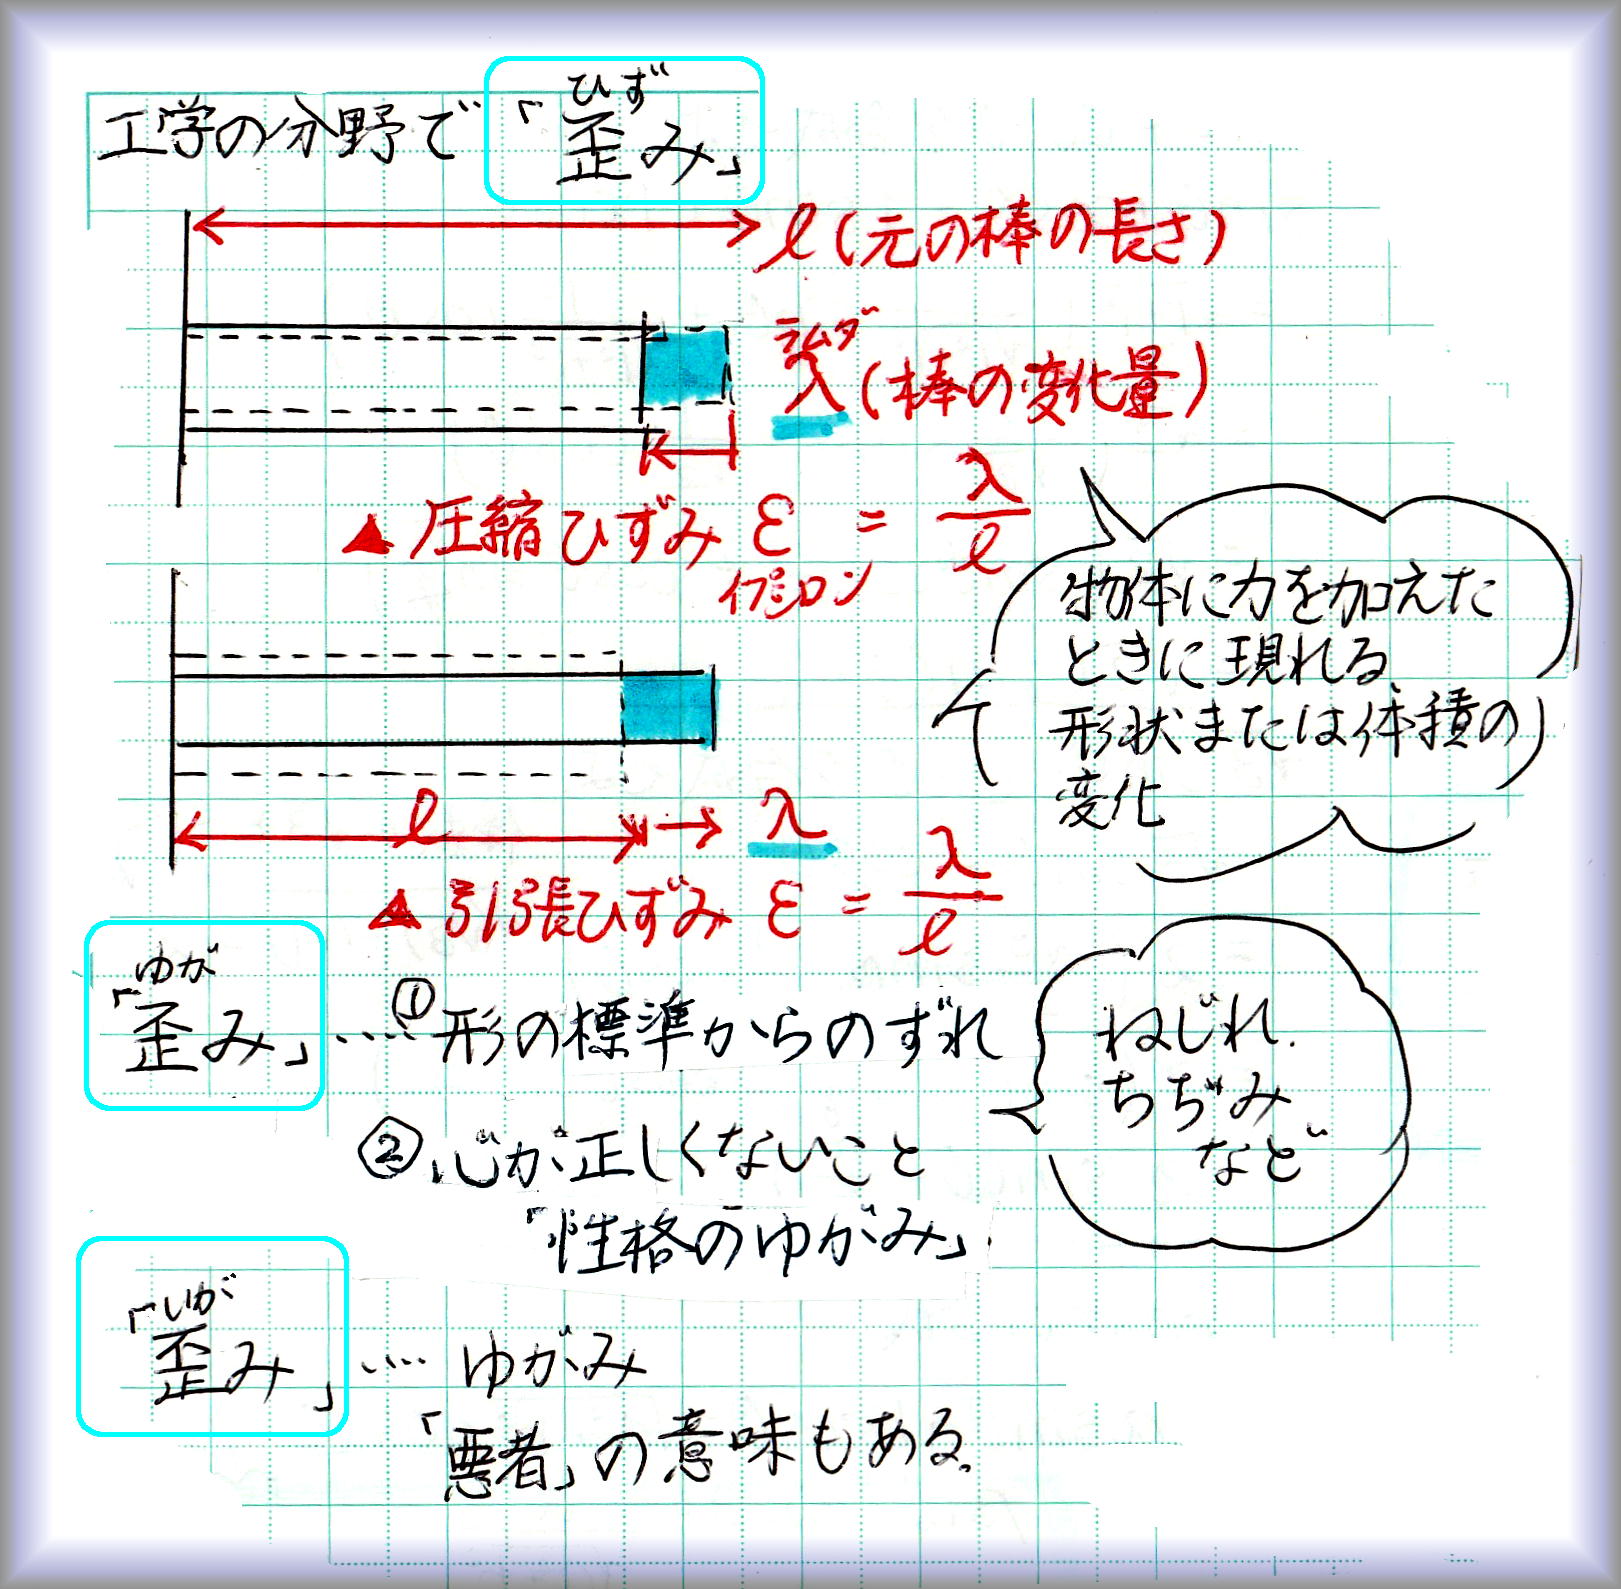 工学の分野で「歪み」
ひず
l (元の棒の長さ)
ラムダ
λ (棒の変化量)
▲ 圧縮ひずみ ε = λ/l
イプシロン
物体に力を加えた
ときに現れる
形状または体積の
変化
l λ
▲ 引張ひずみ ε = λ/l
ゆが
「歪み」…. ① 形の標準からのずれ
ねじれ.
ちぢみ
など
② 心が正しくないこと
「性格のゆがみ」.
いが
「歪み」…. ゆがみ
「悪者」の意味もある.